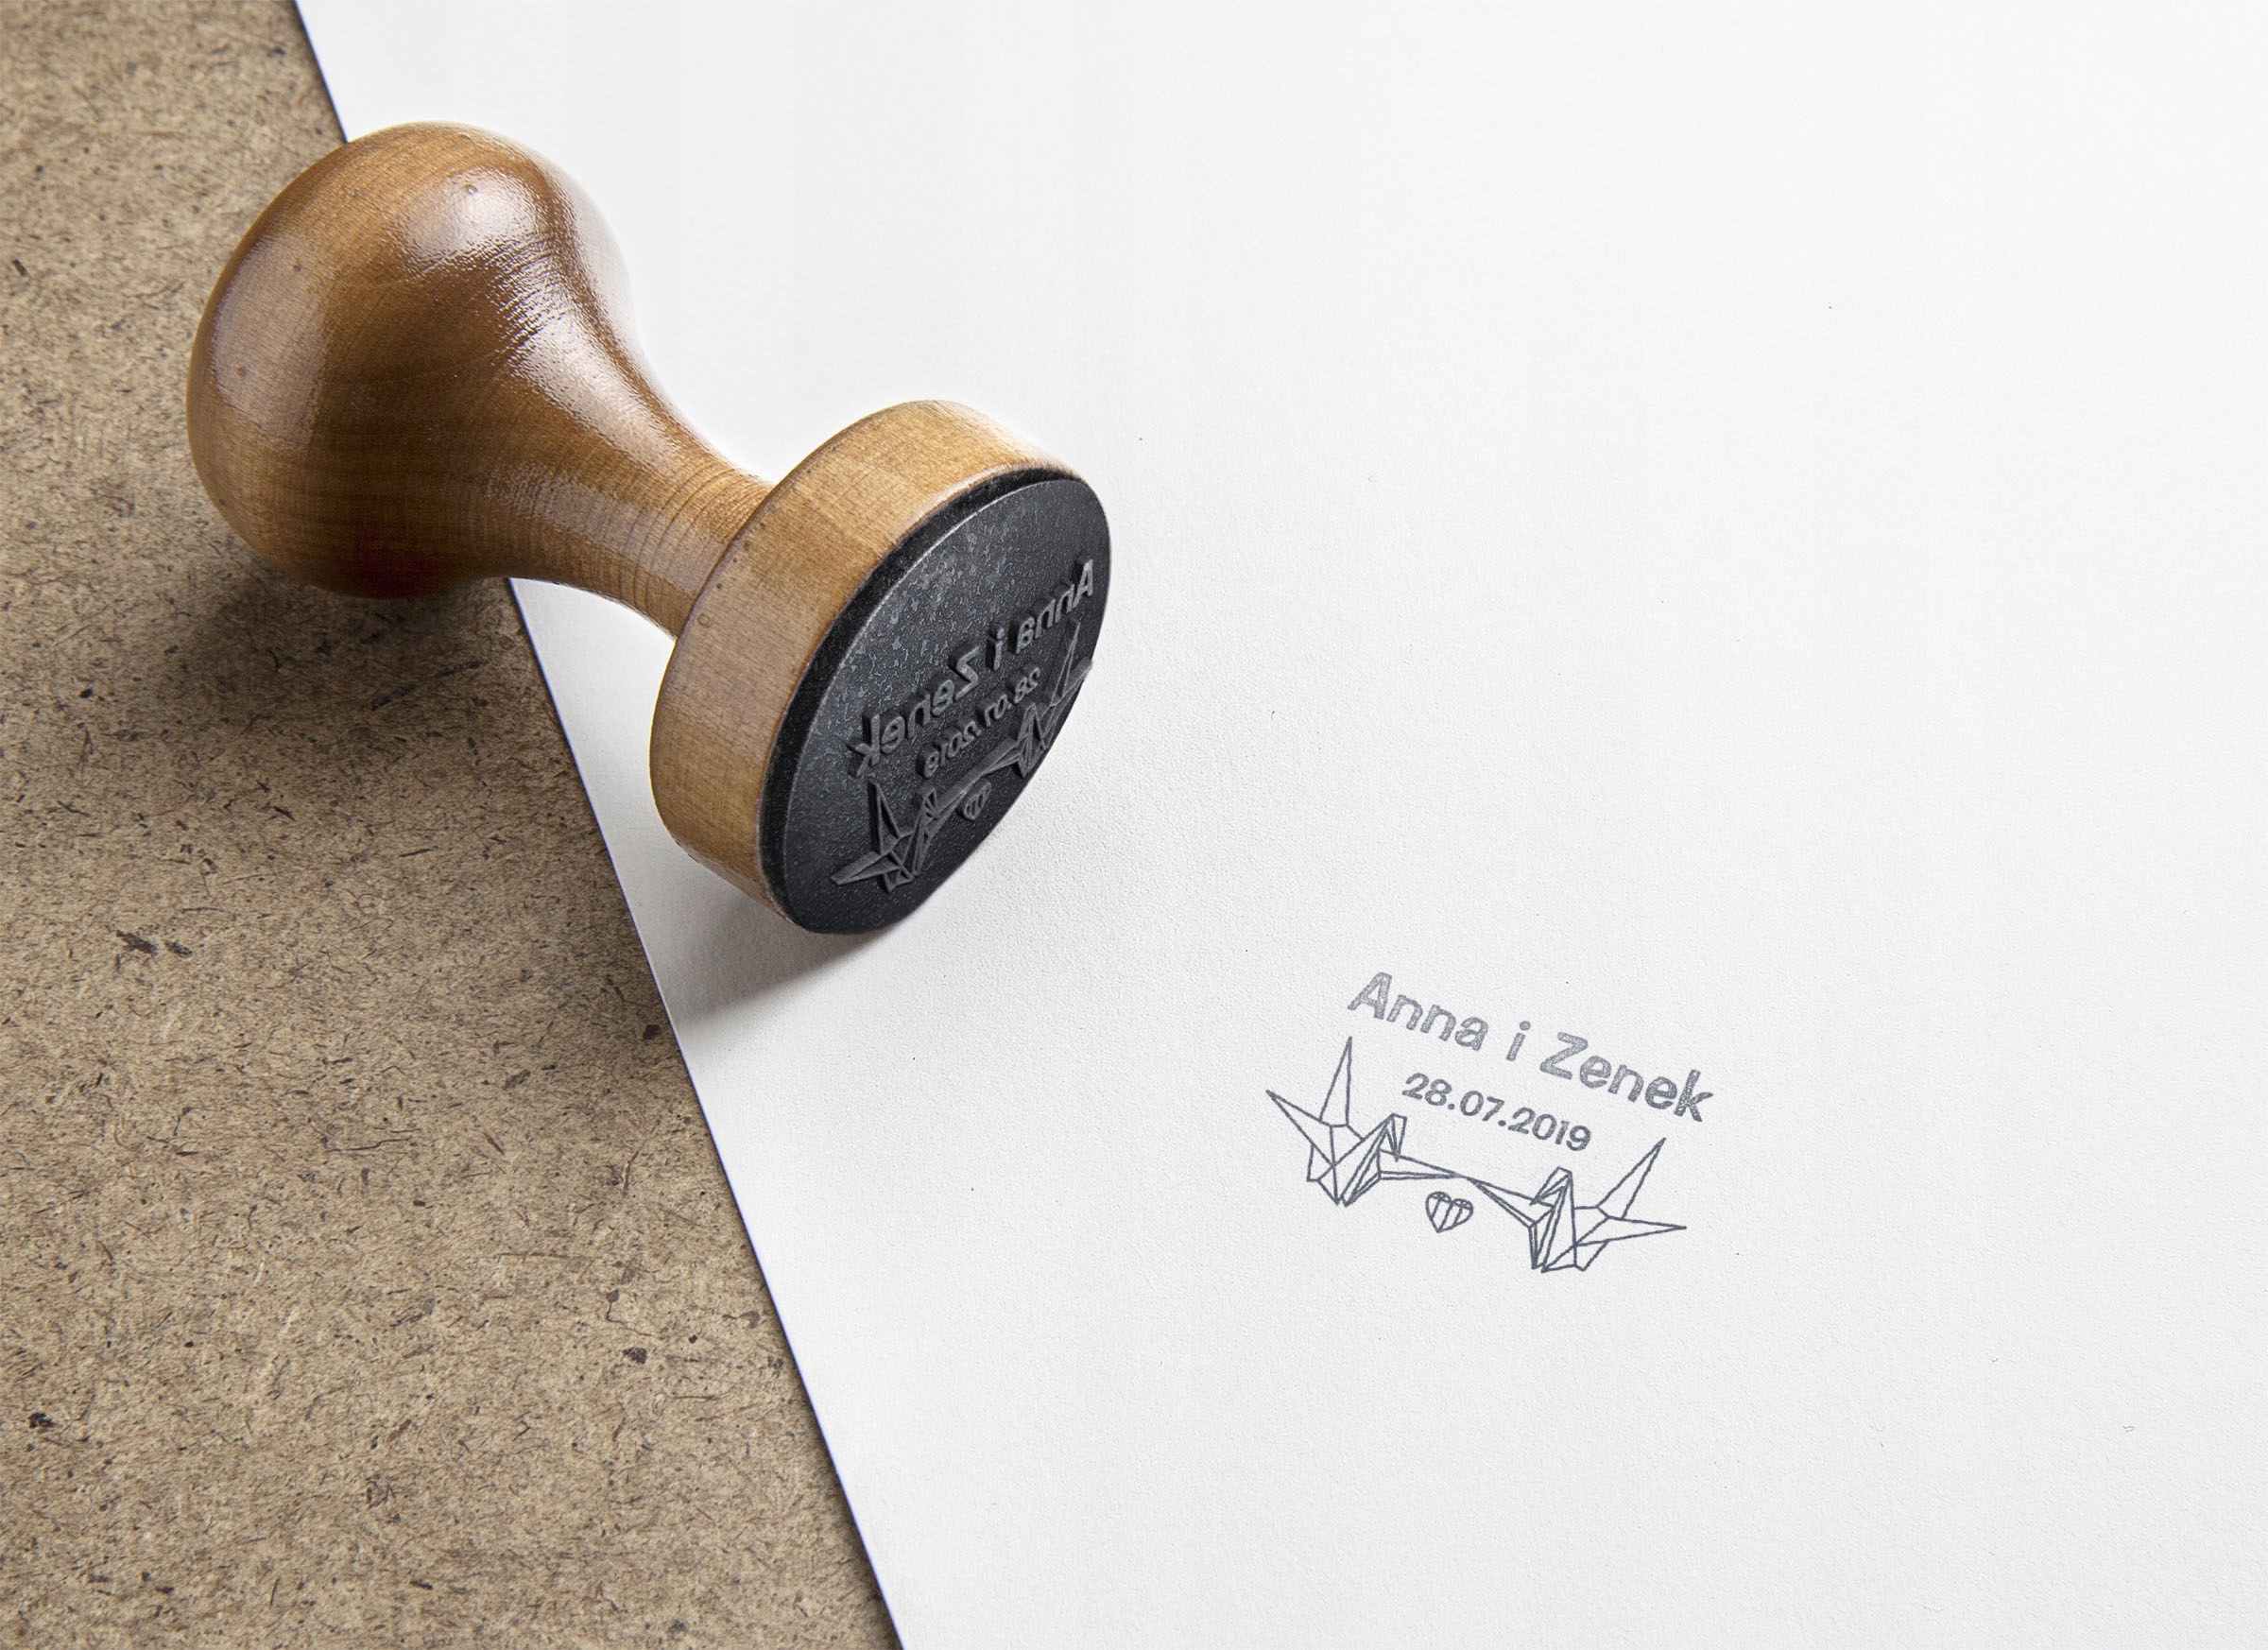 Anna i Zenek
28.07.2019
Anna i Zenek
28.07.2019